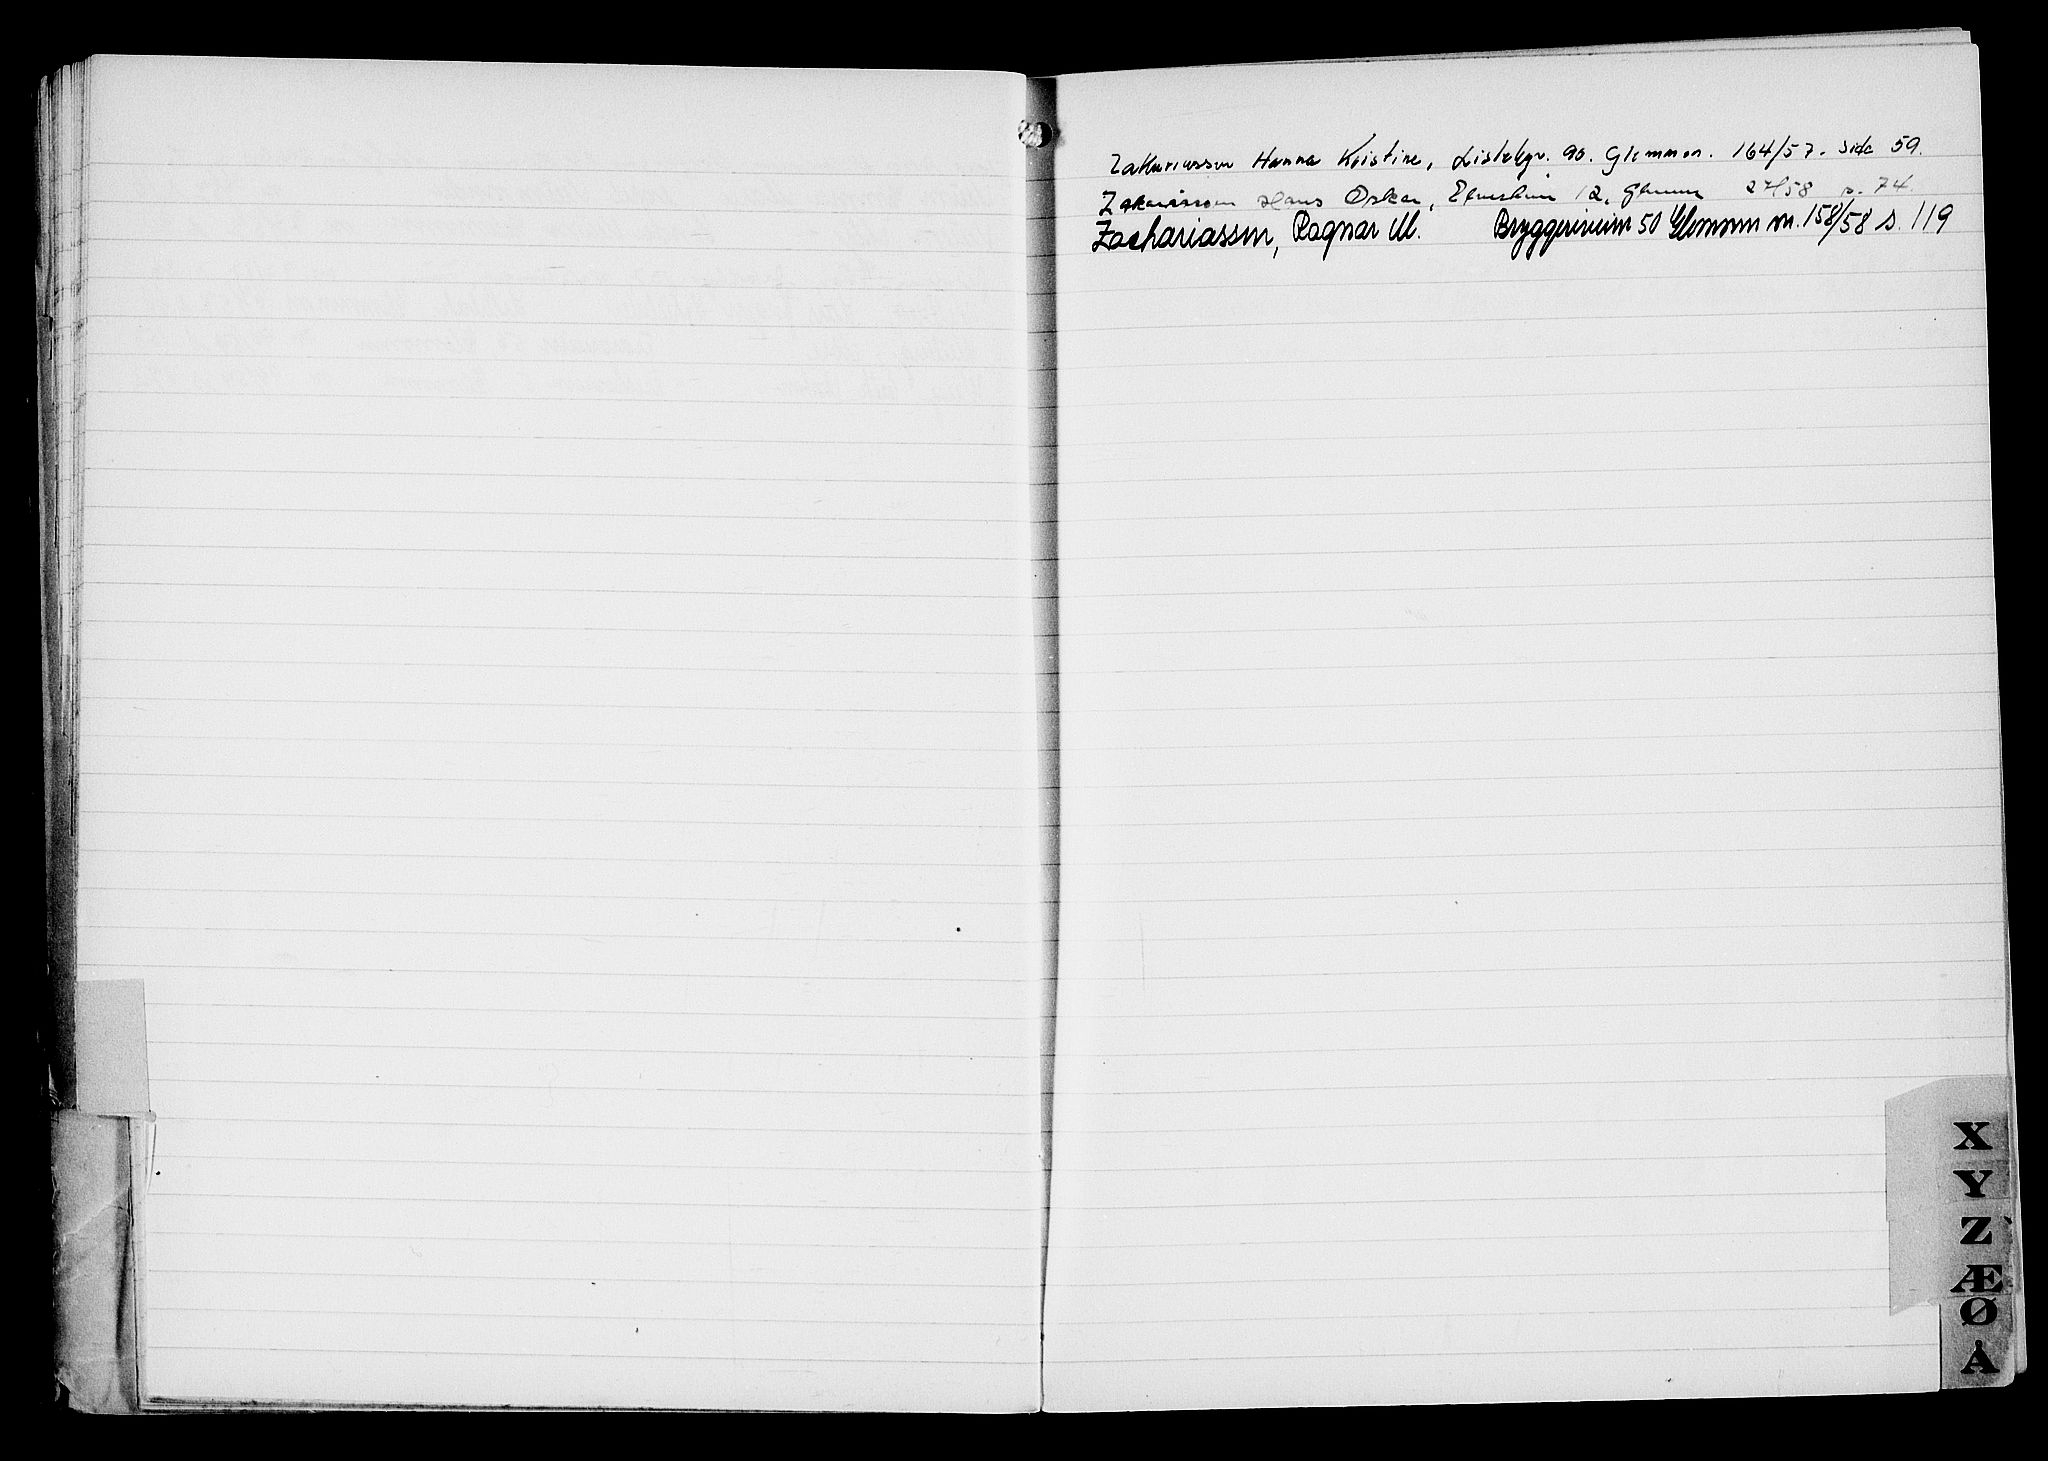 Zakariassen Hanna Kristine, Listebgv. 90. Glemmen. 164/57. side 59.
Zakariassen Hans Oskar, 12, Glemmen 27/58 s. 74.
Zachariassen, Ragnar M. Bryggeriveien 50 Glemmen nr. 158/58 s. 119
X
Y
Z
Æ
Ø
Å